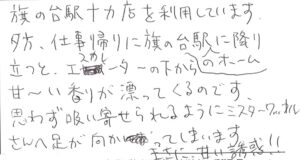 旗の台駅十カ店を利用しています。
夕方、仕事帰りに旗の台駅のホームに降り
立つと、エスカレーターの下から
甘〜い香りが漂ってくるのです。
思わず吸い寄せられるようにミスターワッフル
さんへ足が向かってしまいます。
まさに、甘い誘惑!!